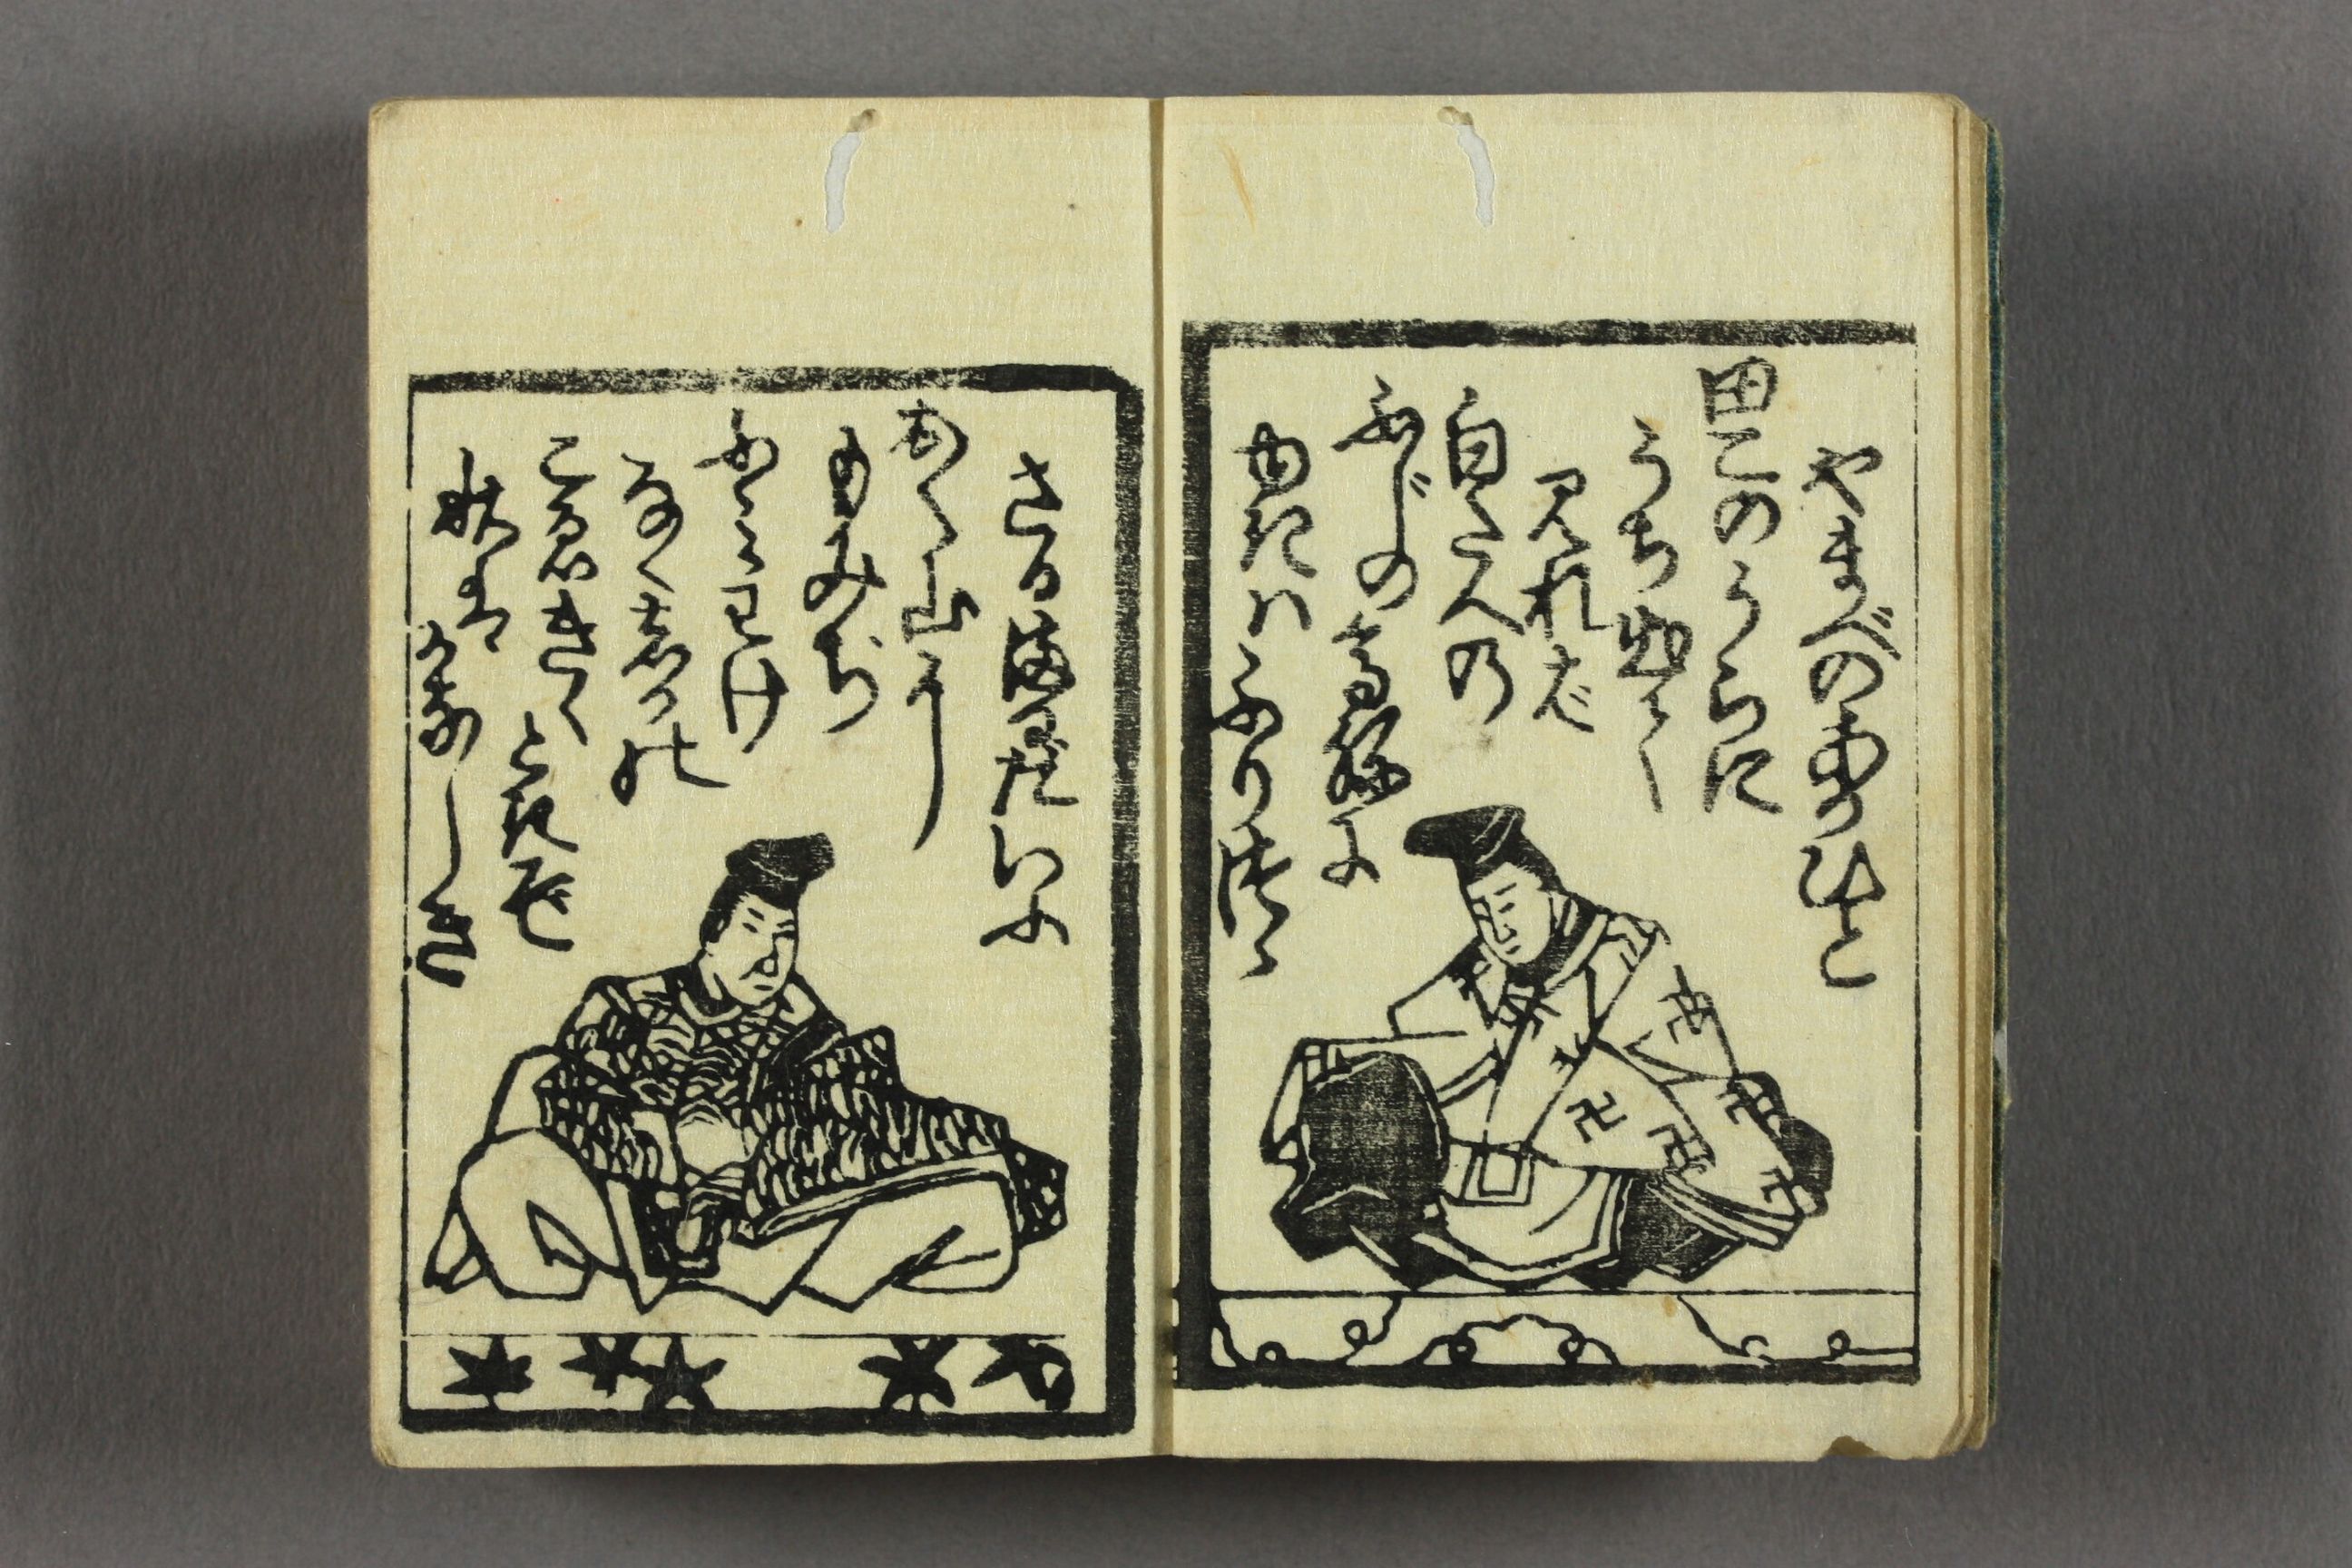 やまべのあかひと
田このうらに
うち出て
見れば
白たへの
ふじの高ねに
ゆきはふりつゝ
さる丸だいふ
おく山に
もみぢ
ふみわけ
なくしかの
こゑきく
ときぞ
秋は
かなしき